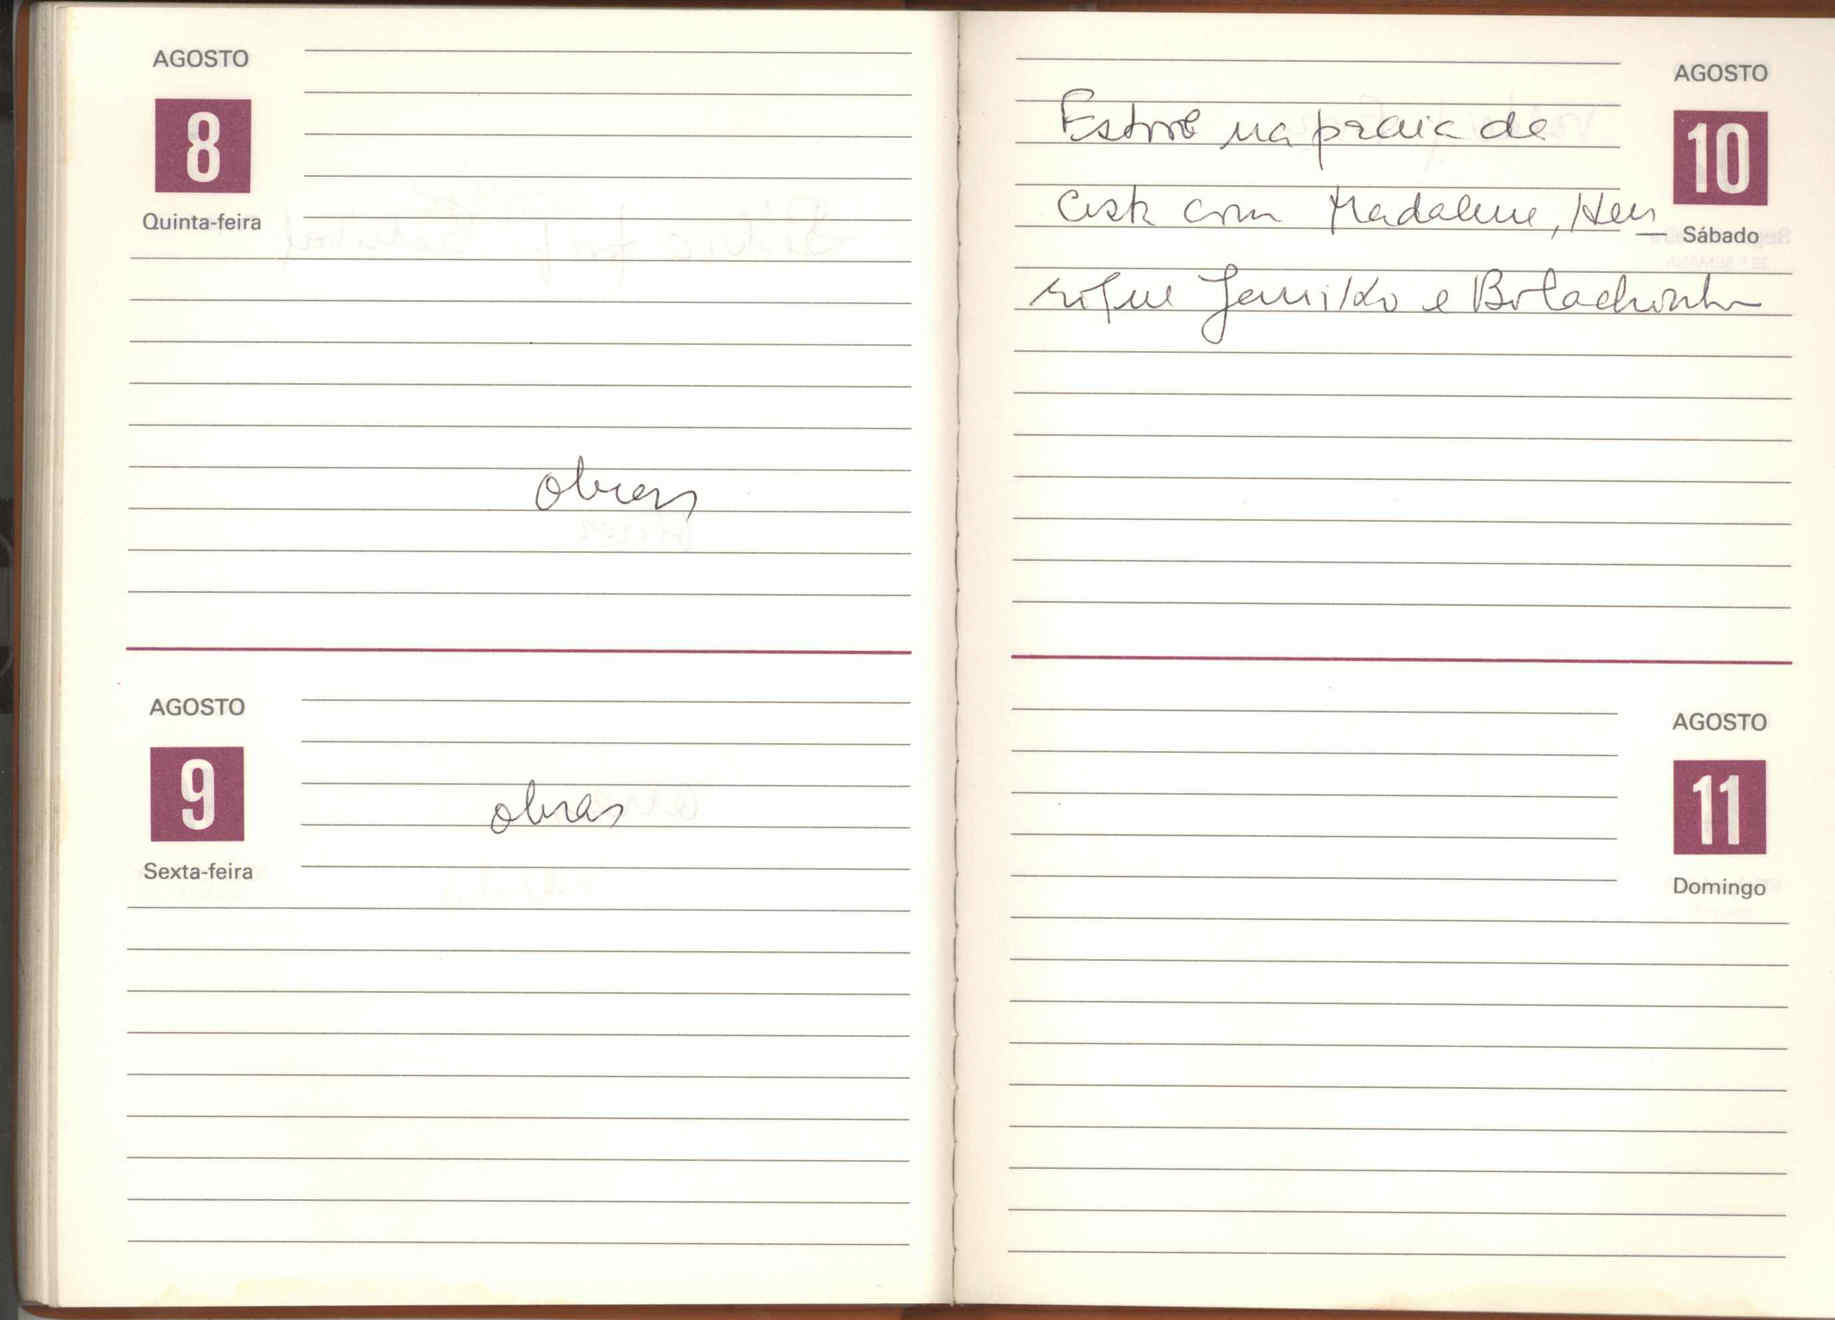 AGOSTO
8
Quinta-feira
obras
AGOSTO
9
Sexta-feira
obras
AGOSTO
10
Sábado
Estive na praia de
com Madalena, Hen_
rique Jamilko e Bolachinha
AGOSTO
11
Domingo